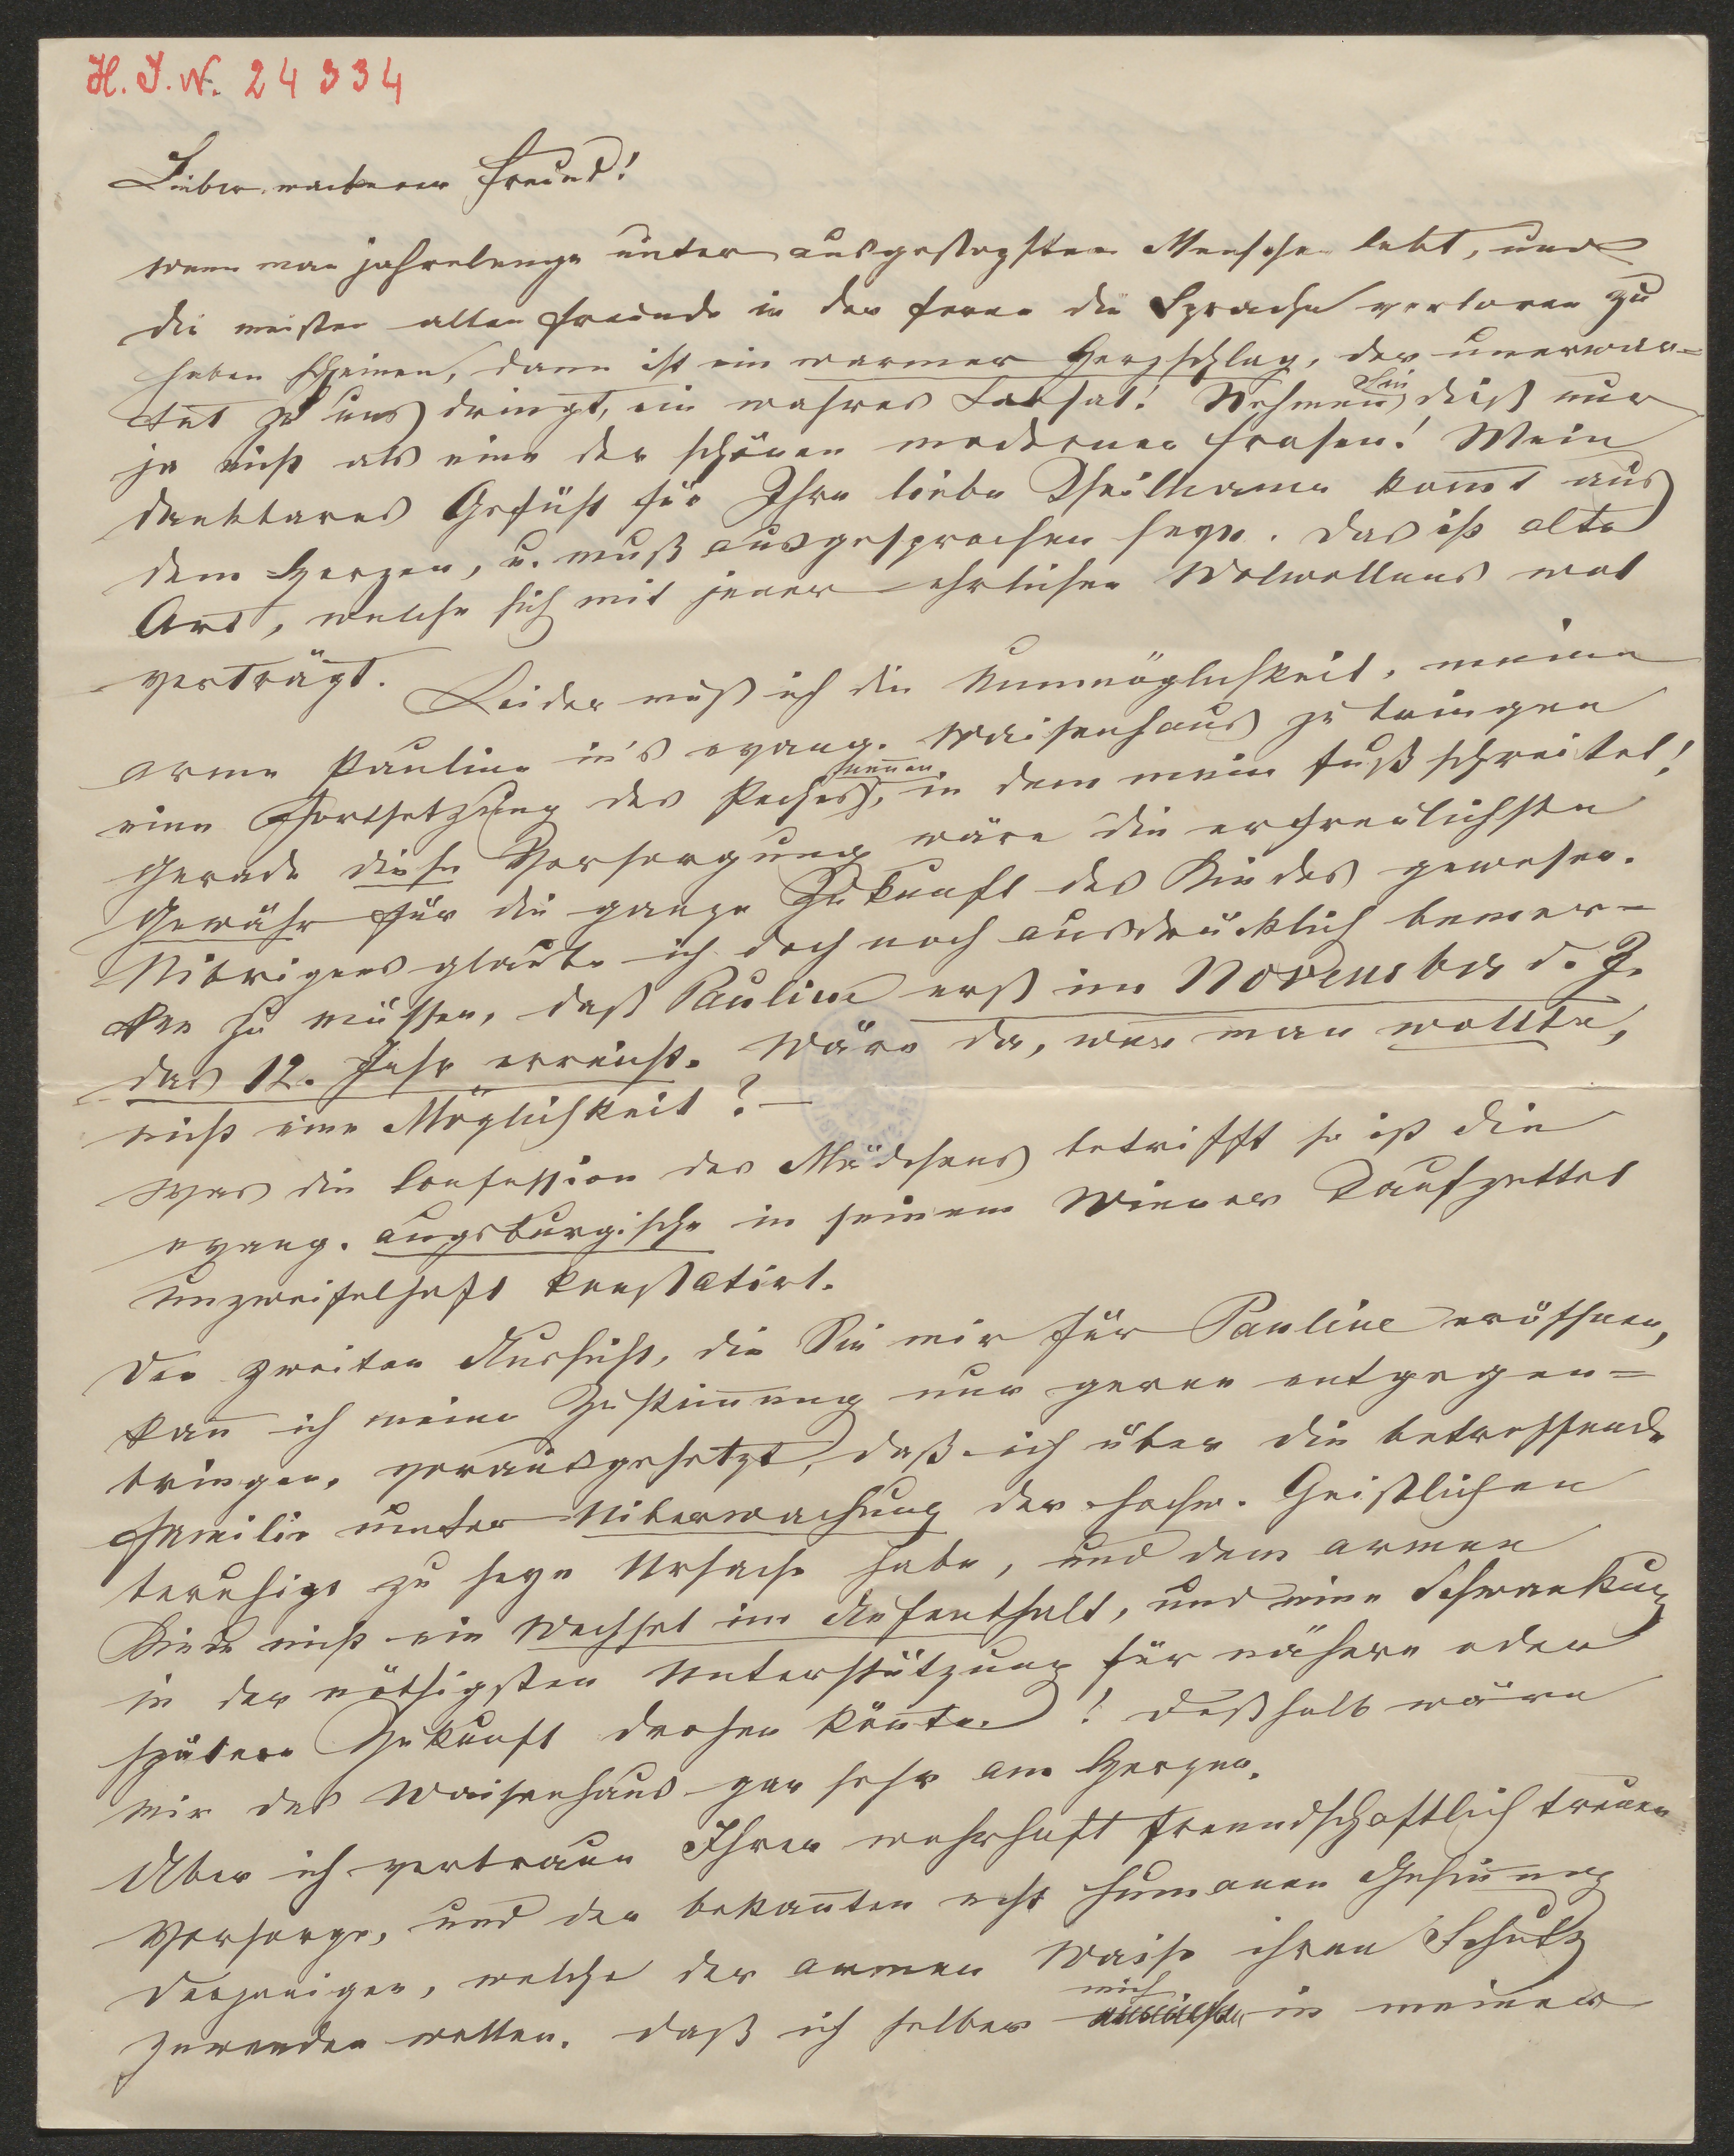 H. I. N. 24334
Lieber wackerer Freund!
wenn man jahrelange unter Menschen lebt, und
die meisten alten Freunde in der Ferne die Sprache verloren zu
haben scheinen, dann ist ein warmer Herzschlag, der unerwar=
tet zu uns dringt, ein wahres Labsal! Nehmen Sie dieß nur
ja nicht als eine der schönen modernen Frasen! Mein
dankbares Gefühl für Ihre liebe Theilname kommt aus
dem Herzen, u. muß ausgesprochen seyn. Das ist alte
Art, welche sich mit jener ehrlichen Wolwollens wol
verträgt. Leider muß ich die Unmöglichkeit, meine
arme Pauline in's evang. Waisenhaus zu bringen
eine Fortsetzung des Peches nennen, in dem mein Fuß schreitet!
Gerade diese Versorgung wäre die erfreulichste
Gewähr für die ganze Zukunft des Kindes gewesen.
Uibrigens glaube ich doch noch ausdrücklich bemer=
ken zu müssen, daß Pauline erst im November d. J.
das 12. Jahr erreicht. Wäre da, wenn man wollte,
nicht eine Möglichkeit? —
Was die Confession des Mädchens betrifft so ist die
evang. augsburgische in seinem Wiener Taufzettel
unzweifelhaft konstatirt.
Der zweiten Aussicht, die Sie mir für Pauline eröffnen,
kann ich meine Zustimmung nur gerne entgegen=
bringen, vorausgesetzt, daß ich über die betreffende
Familie unter Uiberwachung der hochw. Geistlichen
beruhigt zu seyn Ursache habe, und dem armen
Kinde nicht ein Wechsel im Aufenthalt, und eine Schwankung
in der nöthigsten Unterstützung für nähere oder
spätere Zukunft drohen könnte! Deßhalb wäre
mir das Waisenhaus gar sehr am Herzen.
Aber ich vertraue Ihrer wahrhaft freundschaftlich treuen
Vorsorge, und der bekannten echt humanen Gesinnung
derjenigen, welche der armen Waise ihren Schutz
zuwenden wollen. Daß ich selber mich in meiner